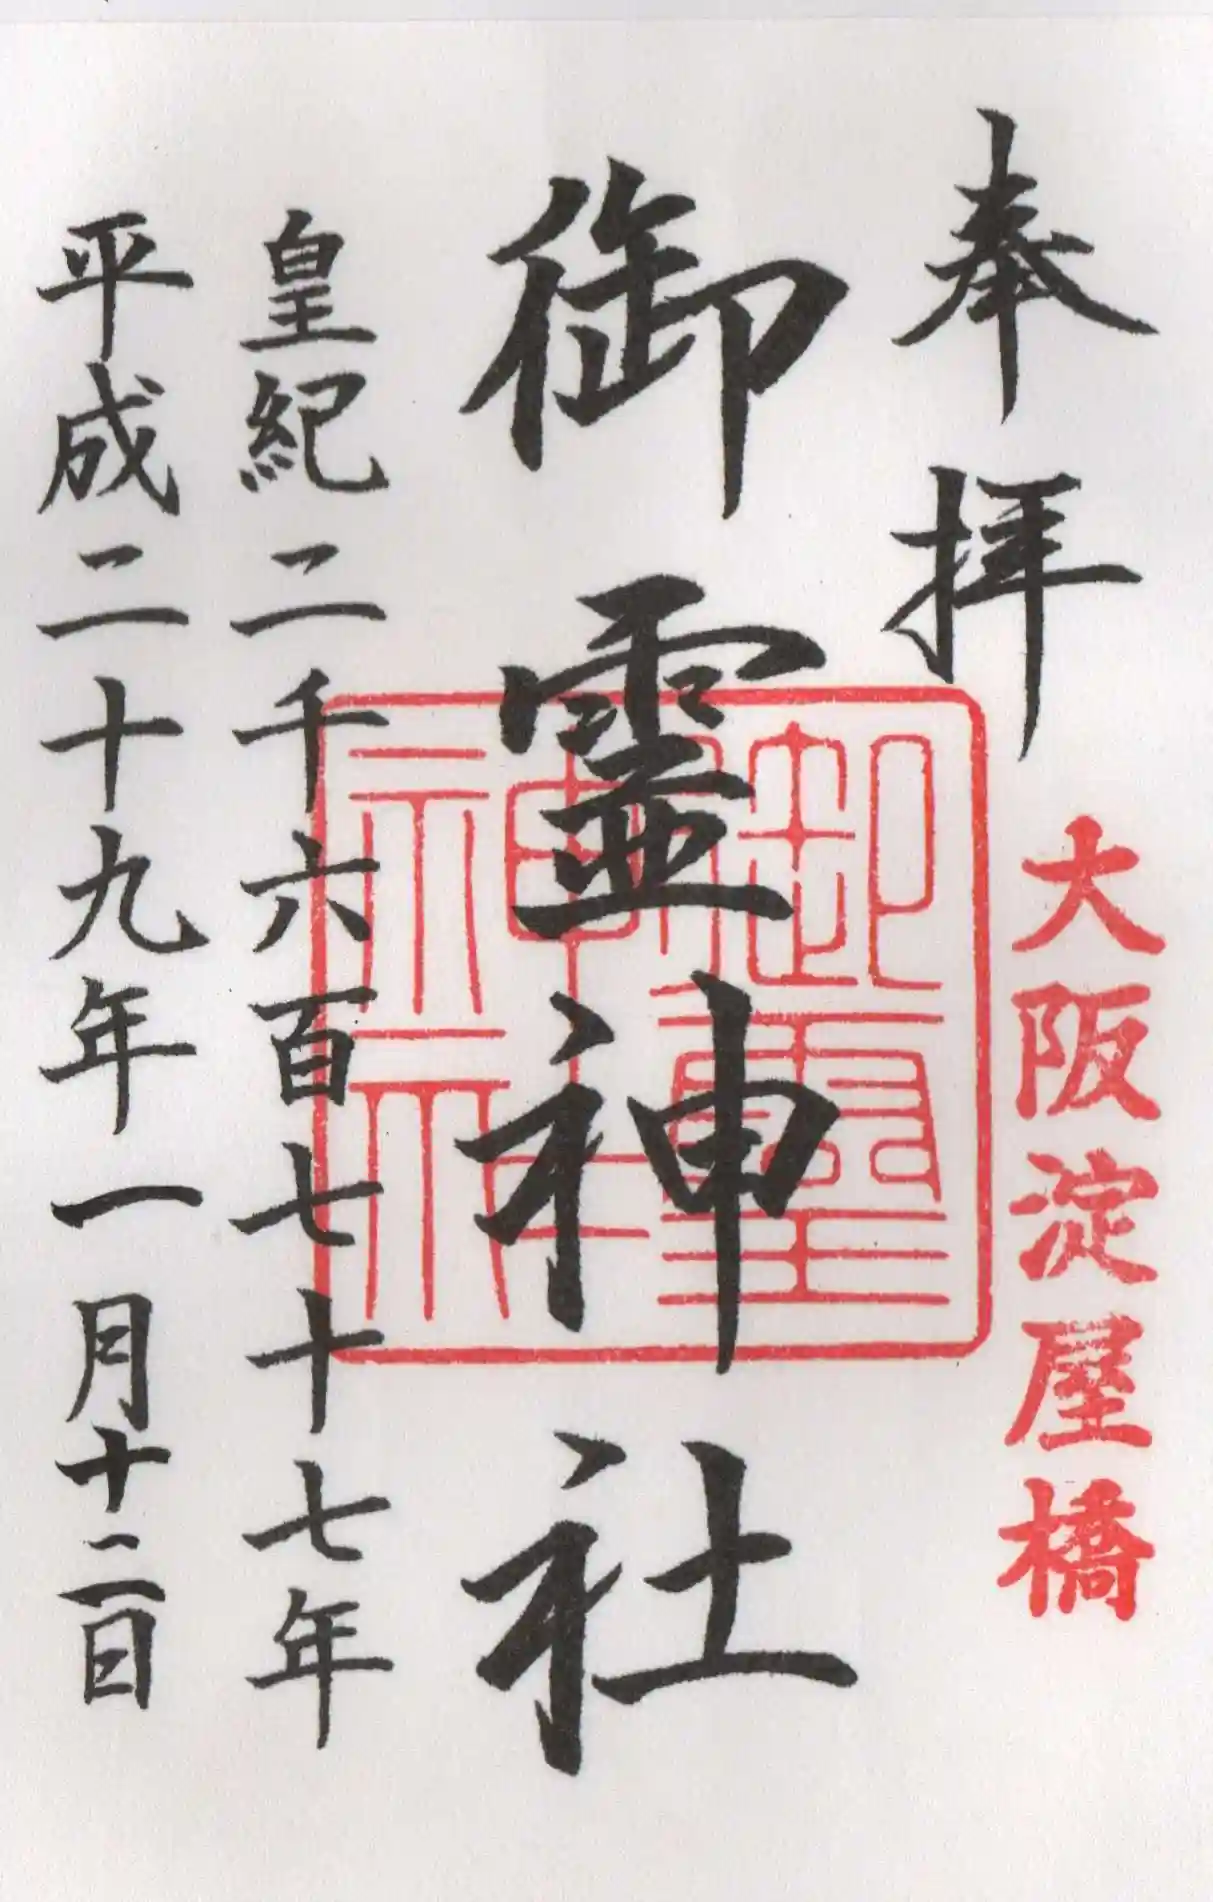 奉拝
大阪淀屋橋
御霊神社
御霊神社
皇紀二千六百七十七年
平成二十九年一月十二日